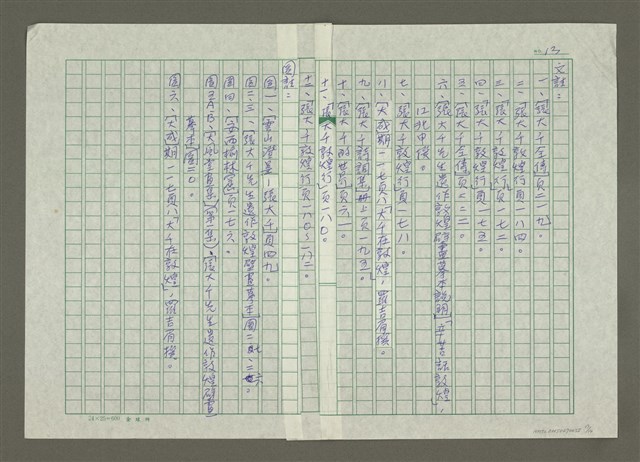 文註：
一、「張大千全傳」頁二一九。
二、「張大千敦煌行」頁一八四。
三、「張大千敦煌行」頁一七二。
四、「張大千敦煌行」頁一七五。
五、「張大千全傳」頁二二二。
六、「張大千先生遺作敦煌壁畫摹本說明」「辛苦話敦煌」，
江兆申撰。
七、「張大千敦煌行」頁一七八。
八、「大成期一一七頁八「大千在敦煌」，羅吉眉撰。
九、「張大千詩詞集」冊上頁一九三。
十、「張大千的世界」頁六一。
十一、「張大千敦煌行」頁一八〇。
十二、「張大千敦煌行」頁一八〇～一八二。
圖註：
圖一、「雲山潑墨 張大千」頁四九。
圖二、三、「張大千先生遺作敦煌壁畫摹本」圖二
圖四、「安西榆林窟」頁一七六。
圖五A、B「大風堂書畫集（第一集）、張大千先生遺作敦煌壁畫
摹本」圖二〇。
圖六、「大成期一一七頁八「大千在敦煌」，羅吉眉撰。